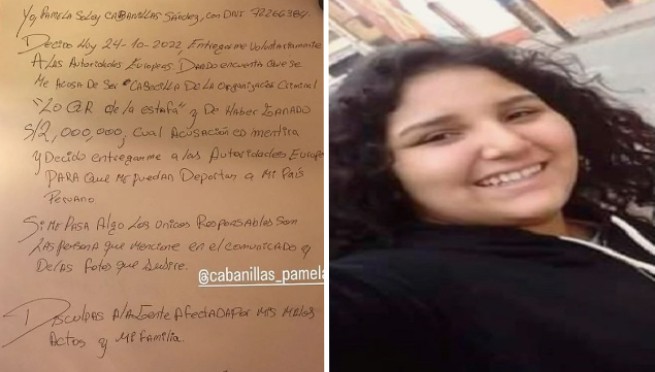 Yo, PAMELA Soley CABANILLAS Sánchez, con DNI 72266384.
Decido Hoy 24-10-2022, Entregarme Voluntariamente
A las Autoridades Europeas. Dado en cuenta Que se
Me Acosa De Ser "CABECILLA De La Organización Criminal
"LO QR de la estafa" y De Haber GANADO
S/2,000,000, cual Acusación es mentira
y Decido entregarme a las Autoridades Europ
PARA Que Me puedan Deportar a Mi País
Peruano
Si Me Pasa Algo Los únicos Responsables Son
Las persona que mencione en el comunicado y
De las fotos que subire.
@cabanillas_pamela
Disculpas A la Gente Afectada por Mis Malos
Actos y Mi familia.